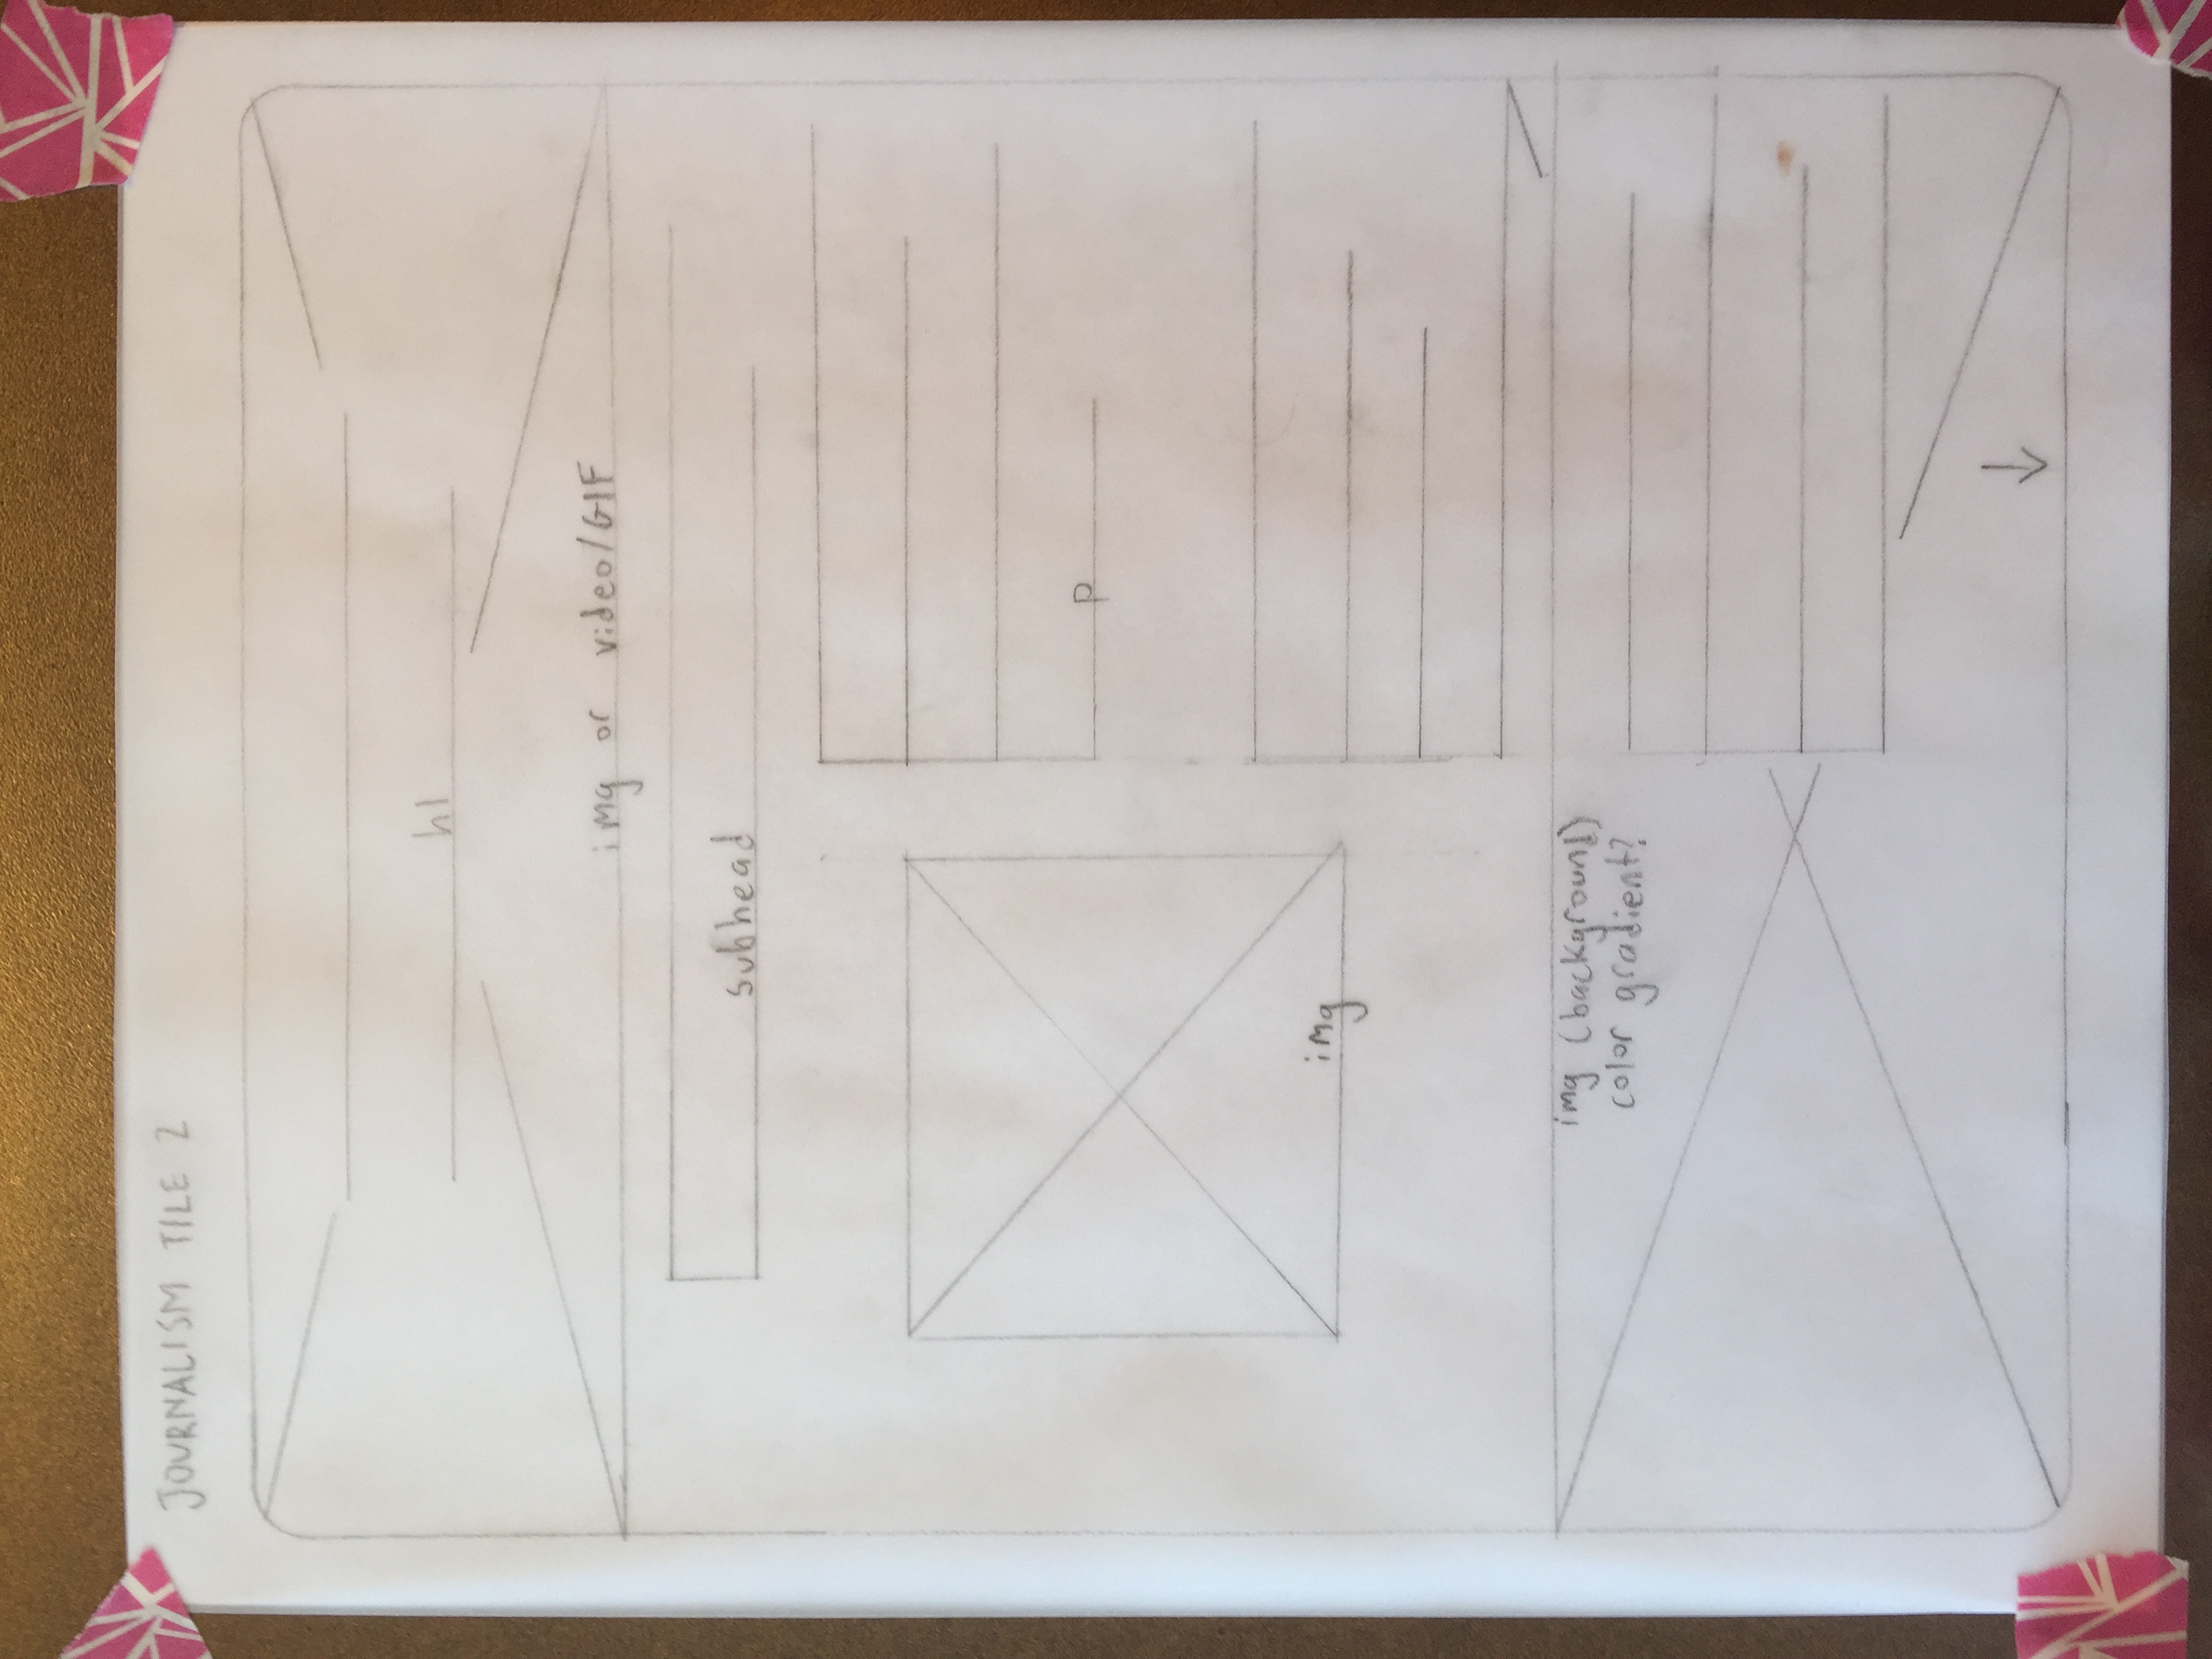 JOURNALISM TILE 2
h1
img or video/GIF
subhead
p
img
img (background)
color gradient?